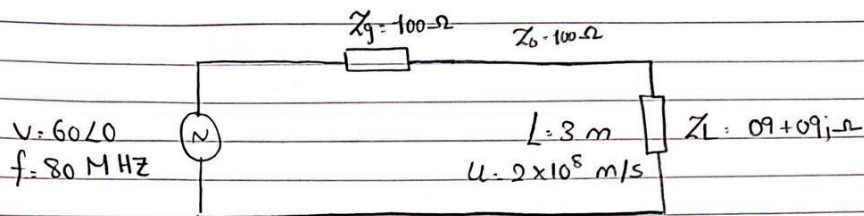 Zg = 100Ω
Zo = 100Ω
V = 60∠0
f = 80 MHZ
L = 3 m
u = 2×10⁸ m/s
ZL = 09+09j Ω